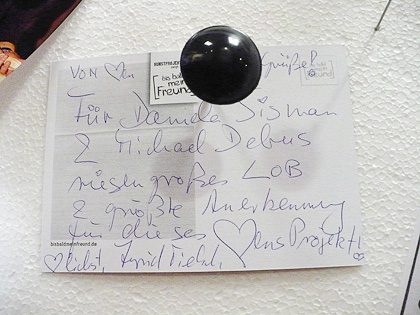 VON ♡en Grüße!
KUNSTPROJEKT
bis bald
mein
Freund
Für Daniela Sisman
& Michael Debus
riesen großes LOB
& größte Anerkennung
für dieses ♡ens Projekt!
bisbaldmeinfreund.de
♡lichst, Ingrid